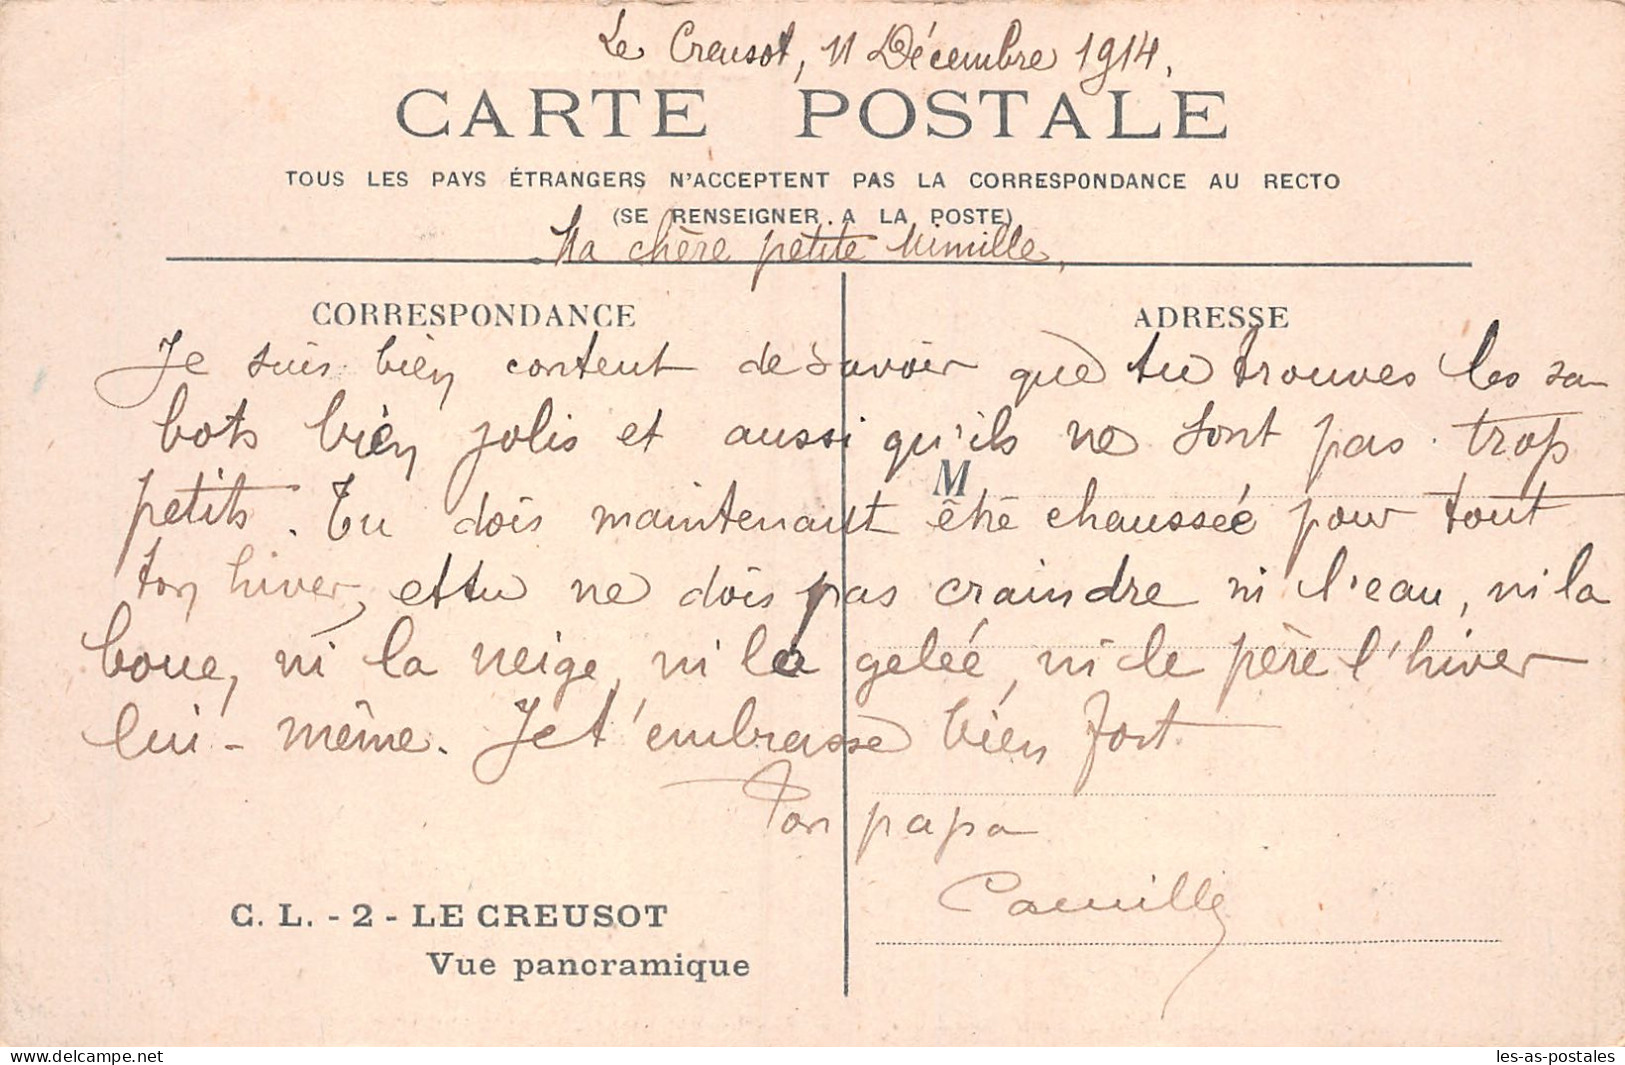 Le Creusot, 11 Décembre 1914.
CARTE POSTALE
TOUS LES PAYS ÉTRANGERS N'ACCEPTENT PAS LA CORRESPONDANCE AU RECTO
(SE RENSEIGNER A LA POSTE)
Ma chère petite Mimille,
CORRESPONDANCE ADRESSE
Je suis bien content de savoir que tu trouves les sa-
bots bien jolis et aussi qu'ils ne sont pas trop
M
petits. Tu dois maintenant être chaussée pour tout
ton hiver, et tu ne dois pas craindre ni l'eau, ni la
boue, ni la neige, ni la gelée, ni le père l'hiver
lui-même. Je t'embrasse bien fort
Ton papa
Camille
C. L. - 2 - LE CREUSOT
Vue panoramique
delcampe.net
les-as-postales